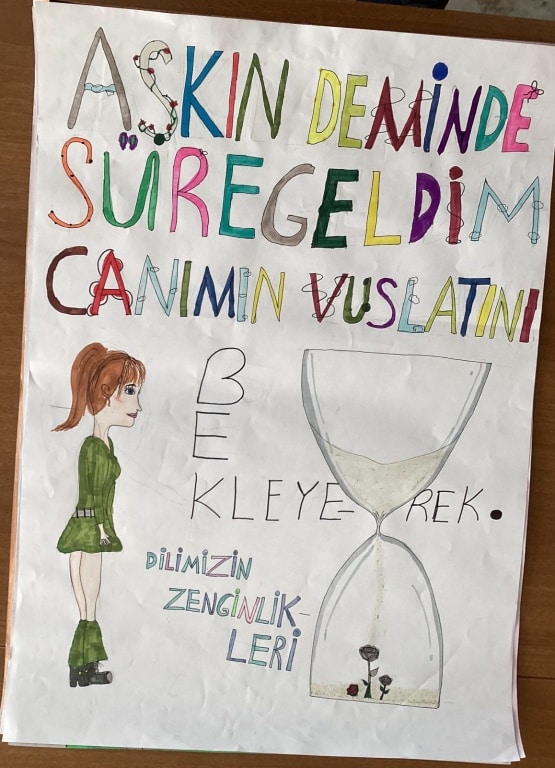 AŞKIN DEMİNDE
SÜREGELDİM
CANIMIN VUSLATINI
B
E
KLEYE-REK.
DİLİMİZİN
ZENGİNLİK-
LERİ